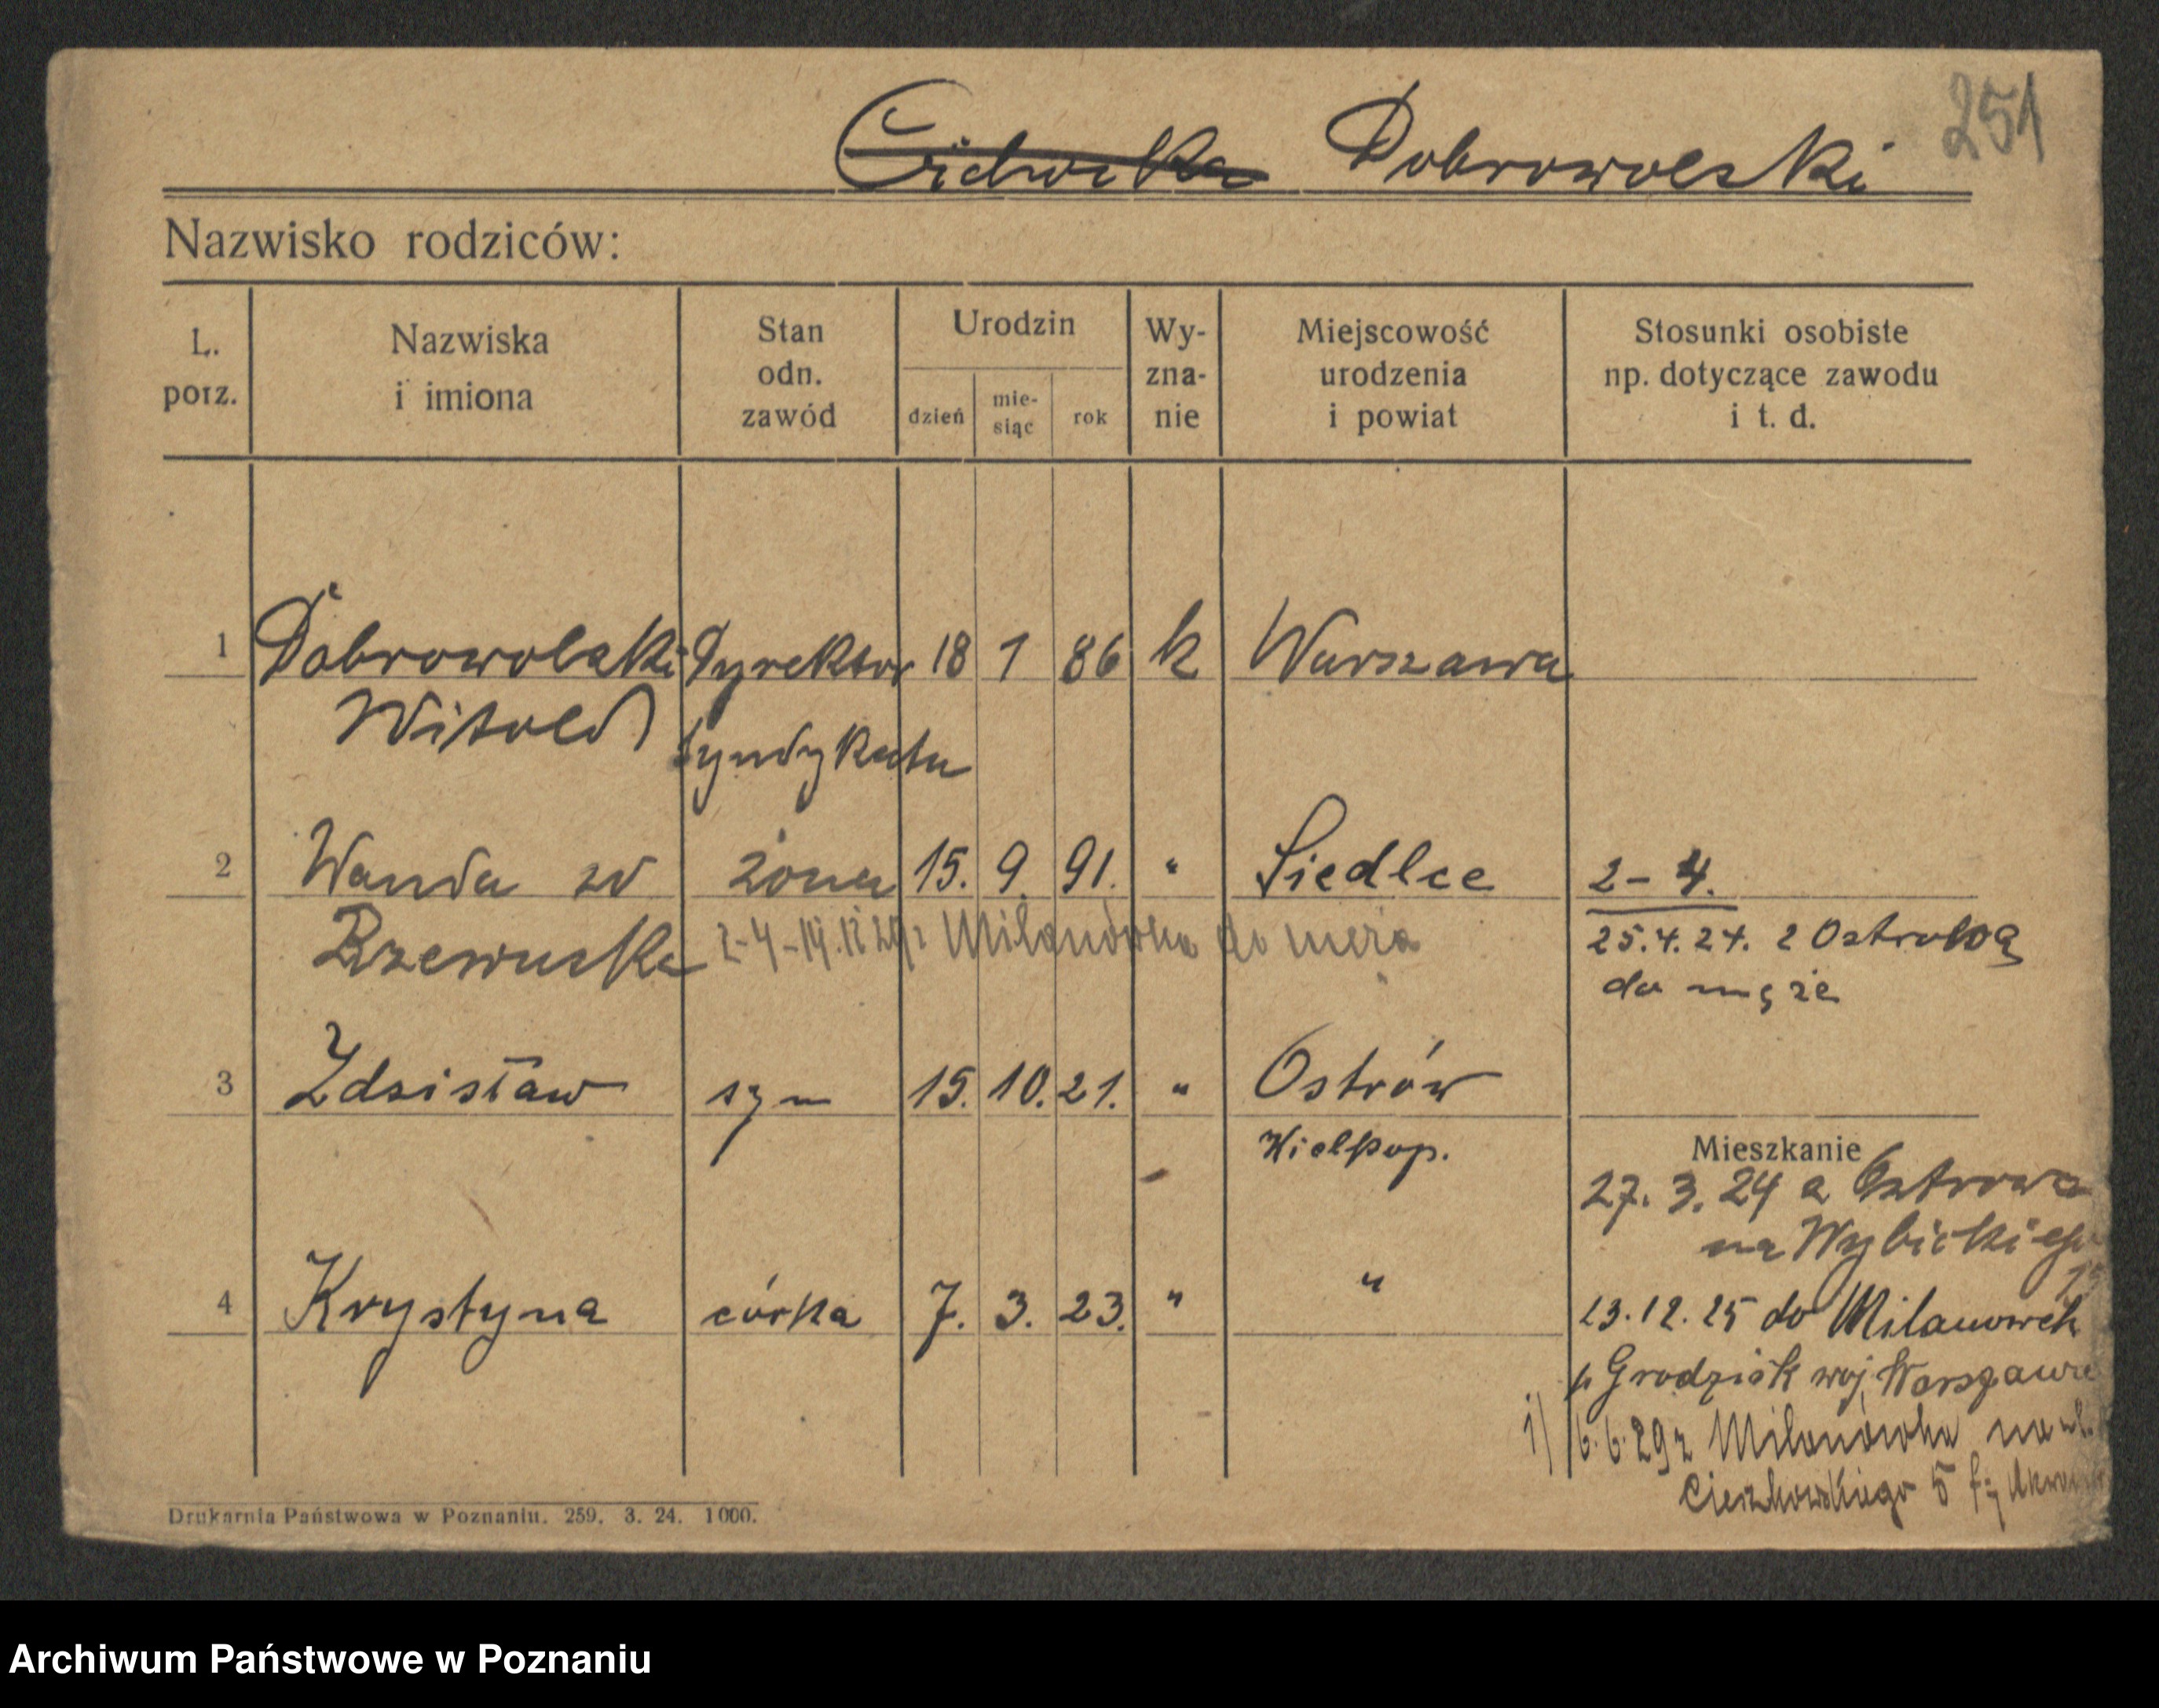 Dobrowolski 251
Nazwisko rodziców:
L. porz. Nazwiska i imiona Stan odn. zawód Urodzin dzień mie- siąc rok Wy- zna- nie Miejscowość urodzenia i powiat Stosunki osobiste np. dotyczące zawodu i t. d.
1 Dobrowolski Dyrektor 18 1 86 k Warszawa
Witold syndykatu
2 Wanda zd żona 15. 9. 91. " Siedlce 2-4.
Rzewuska 2-4- Milanówka do męża 25.4.24. z Ostrołęg
do męża
3 Zdzisław syn 15. 10. 21. " Ostrów
Wielkop. Mieszkanie
27. 3. 24 z Ostrowa
na Wybickiego
4 Krystyna córka 7. 3. 23. " "
13.12.25 do Milanowek
p Grodzisk woj. Warszawa
1) 6.6.29 z Milanówka na ul.
Cieszkowskiego 5
Drukarnia Państwowa w Poznaniu. 259. 3. 24. 1000.
Archiwum Państwowe w Poznaniu